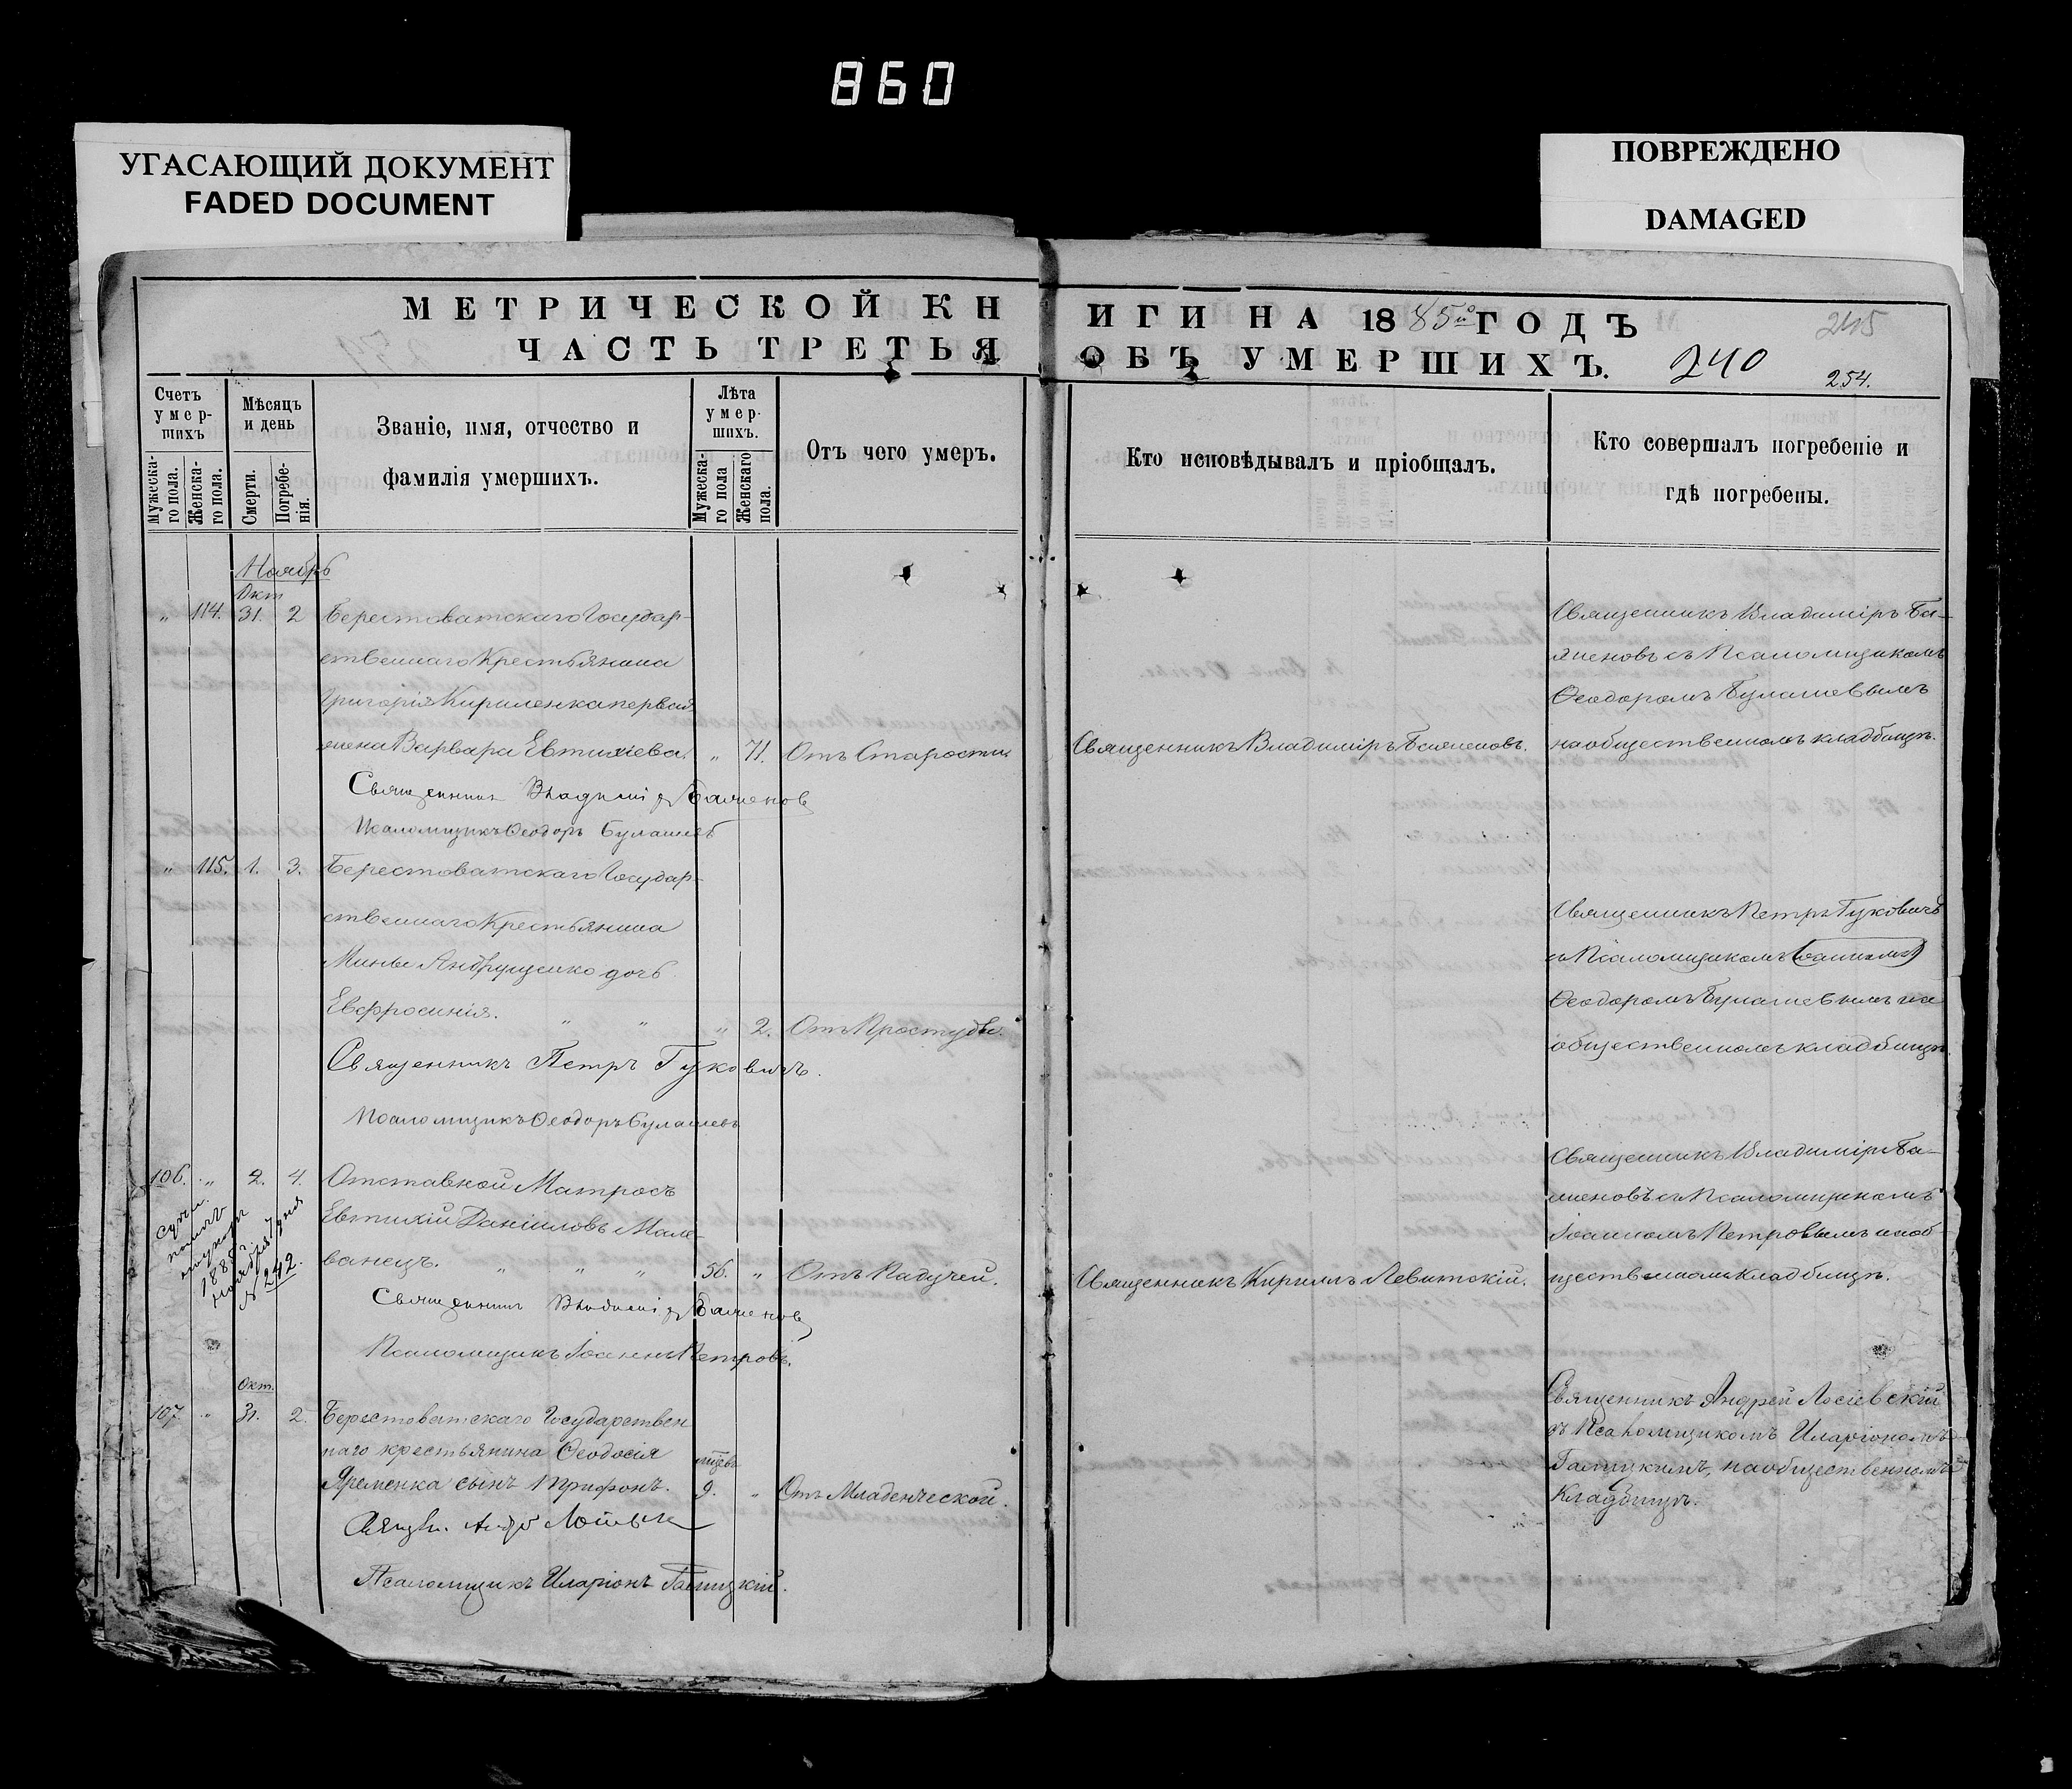 860
УГАСАЮЩИЙ ДОКУМЕНТ
FADED DOCUMENT
ПОВРЕЖДЕНО
DAMAGED
МЕТРИЧЕСКОЙ КН
ЧАСТЬ ТРЕТЬЯ
Счетъ умер-шихъ
Мужеска-го пола.
Женска-го пола.
Мѣсяцъ и день
Смерти.
Погребе-нія.
Званіе, имя, отчество и
фамилія умершихъ.
Лѣта умер-шихъ.
Мужеска-го пола
Женскаго пола.
Отъ чего умеръ.
Ноябрь
Окт
„ 114. 31. 2 Берестоватскаго Государ-
ственнаго Крестьянина
Григорія Кириленка первая
жена Варвара Евтихіева. „ 71. Отъ Старости
Священникъ Владиміръ Баженов
Псаломщикъ Ѳеодоръ Булашев
„ 115. 1. 3. Берестоватскаго Государ-
ственнаго Крестьянина
Мины Андрущенко дочь
Евфросинія. „ „ „ 2. Отъ Простуды.
Священникъ Петръ Гуковичъ.
Псаломщикъ Ѳеодоръ Булашевъ
106. „ 2. 4. Отставной Матросъ
Евтихій Даніиловъ Мале-
ванецъ. „ „ „ 56. „ Отъ Падучей.
1885
ноября 7 дня
№ 242.
Священникъ Владиміръ Баженов
Псаломщикъ Іоаннъ Петровъ.
Окт.
107. „ 31. 2. Берестоватскаго Государствен
наго крестьянина Ѳеодосія мцевъ
Яременка сынъ Трифонъ. 9. „ Отъ Младенческой.
Псаломщикъ Иларіонъ Галицкій.
ИГИ НА 1885й ГОДЪ
ОБЪ УМЕРШИХЪ.
245
240
254.
Кто исповѣдывалъ и пріобщалъ.
Кто совершалъ погребеніе и
гдѣ погребены.
Священникъ Владиміръ Ба-
женовъ съ Псаломщикомъ
Ѳеодоромъ Булашевымъ
Священникъ Владиміръ Баженовъ. на общественномъ кладбищѣ.
Священникъ Петръ Гуковичъ
съ Псаломщикомъ
Ѳеодоромъ Булашевымъ на
общественномъ кладбищѣ.
Священникъ Владиміръ Ба-
женовъ съ Псаломщикомъ
Іоанномъ Петровымъ на об-
Священникъ Кириллъ Левитскій. щественномъ кладбищѣ.
Священникъ Андрей Лосіевскій
съ Псаломщикомъ Иларіономъ
Галицкимъ, на общественномъ
Кладбищѣ.